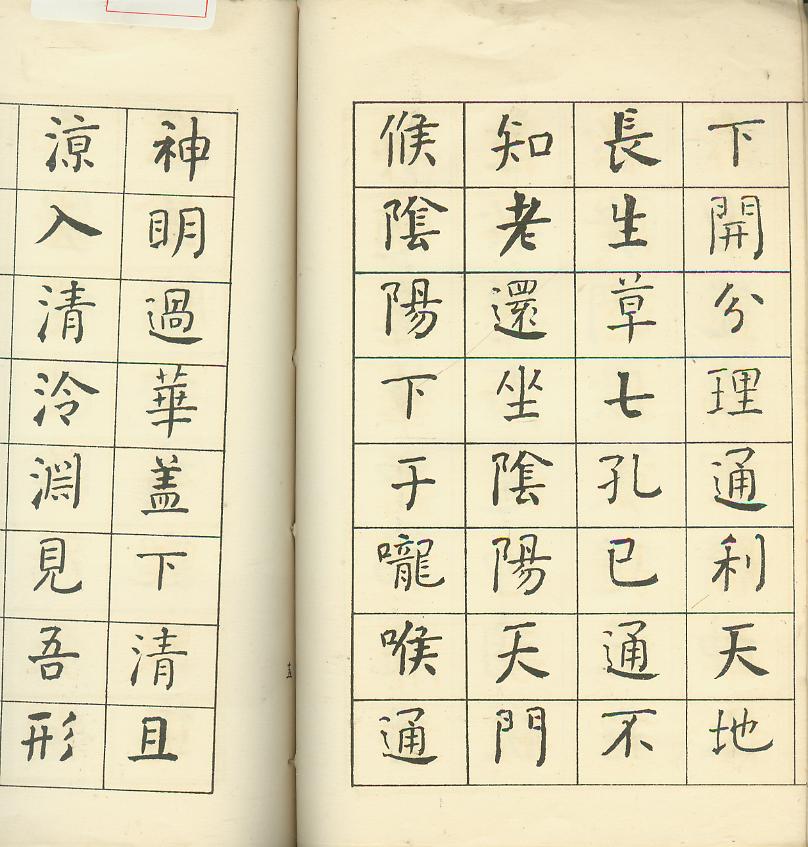 下開分理通利天地
長生草七孔已通不
知老還坐陰陽天門
候陰陽下于嚨喉通
神明過華盖下清且
涼入清泠淵見吾形